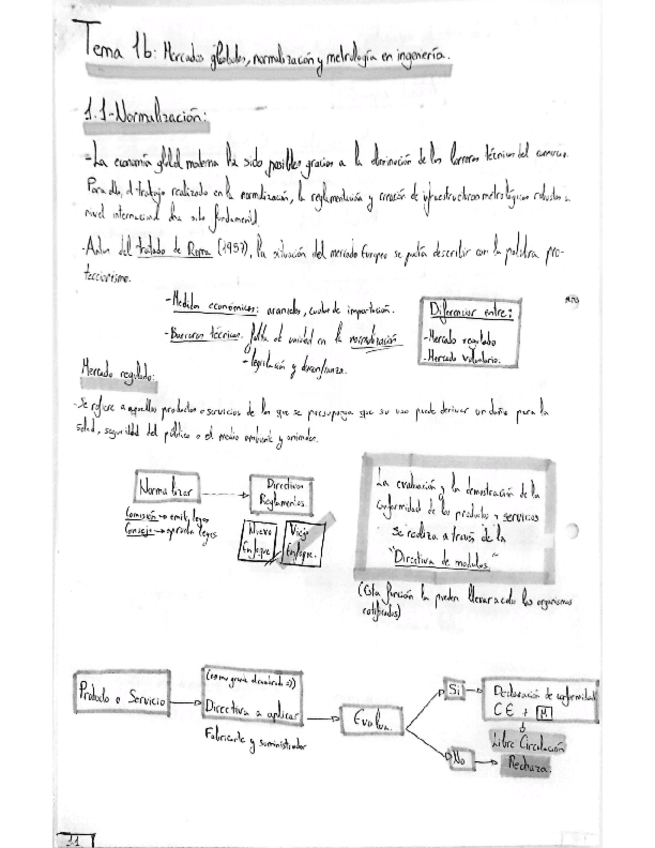 Tema 1b: Mercados globales, normalización y metrología en ingeniería.
1.1-Normalización:
-La economía global moderna ha sido posible gracias a la disminución de las barreras técnicas del comercio.
Para ello, el trabajo realizado en la normalización, la reglamentación y creación de infraestructuras metrológicas robustas a
nivel internacional ha sido fundamental.
-Antes del tratado de Roma (1957), la situación del mercado Europeo se podía describir con la palabra pro-
teccionismo.
-Medidas económicas: aranceles, cuotas de importación.
-Barreras técnicas: falta de unidad en la normalización
-legislación y desconfianza.
Diferenciar entre:
-Mercado regulado
-Mercado Voluntario.
Mercado regulado:
-Se refiere a aquellos productos o servicios de los que se presuponga que su uso puede derivar un daño para la
salud, seguridad del público o el medio ambiente y animales.
Normalizar
Directivas
Reglamentos.
Comisión → emite leyes
Consejo → aprueba leyes
Nuevo
Enfoque
Viejo
Enfoque.
La evaluación y la demostración de la
conformidad de los productos o servicios
se realiza a través de la
"Directiva de modulos."
(Esta función la pueden llevar a cabo los organismos
notificados)
Producto o Servicio
Directiva a aplicar
Fabricante y suministrador
Evalua.
Si
Declaración de conformidad
CE + M
Libre Circulación
No
Rechaza.
1.1